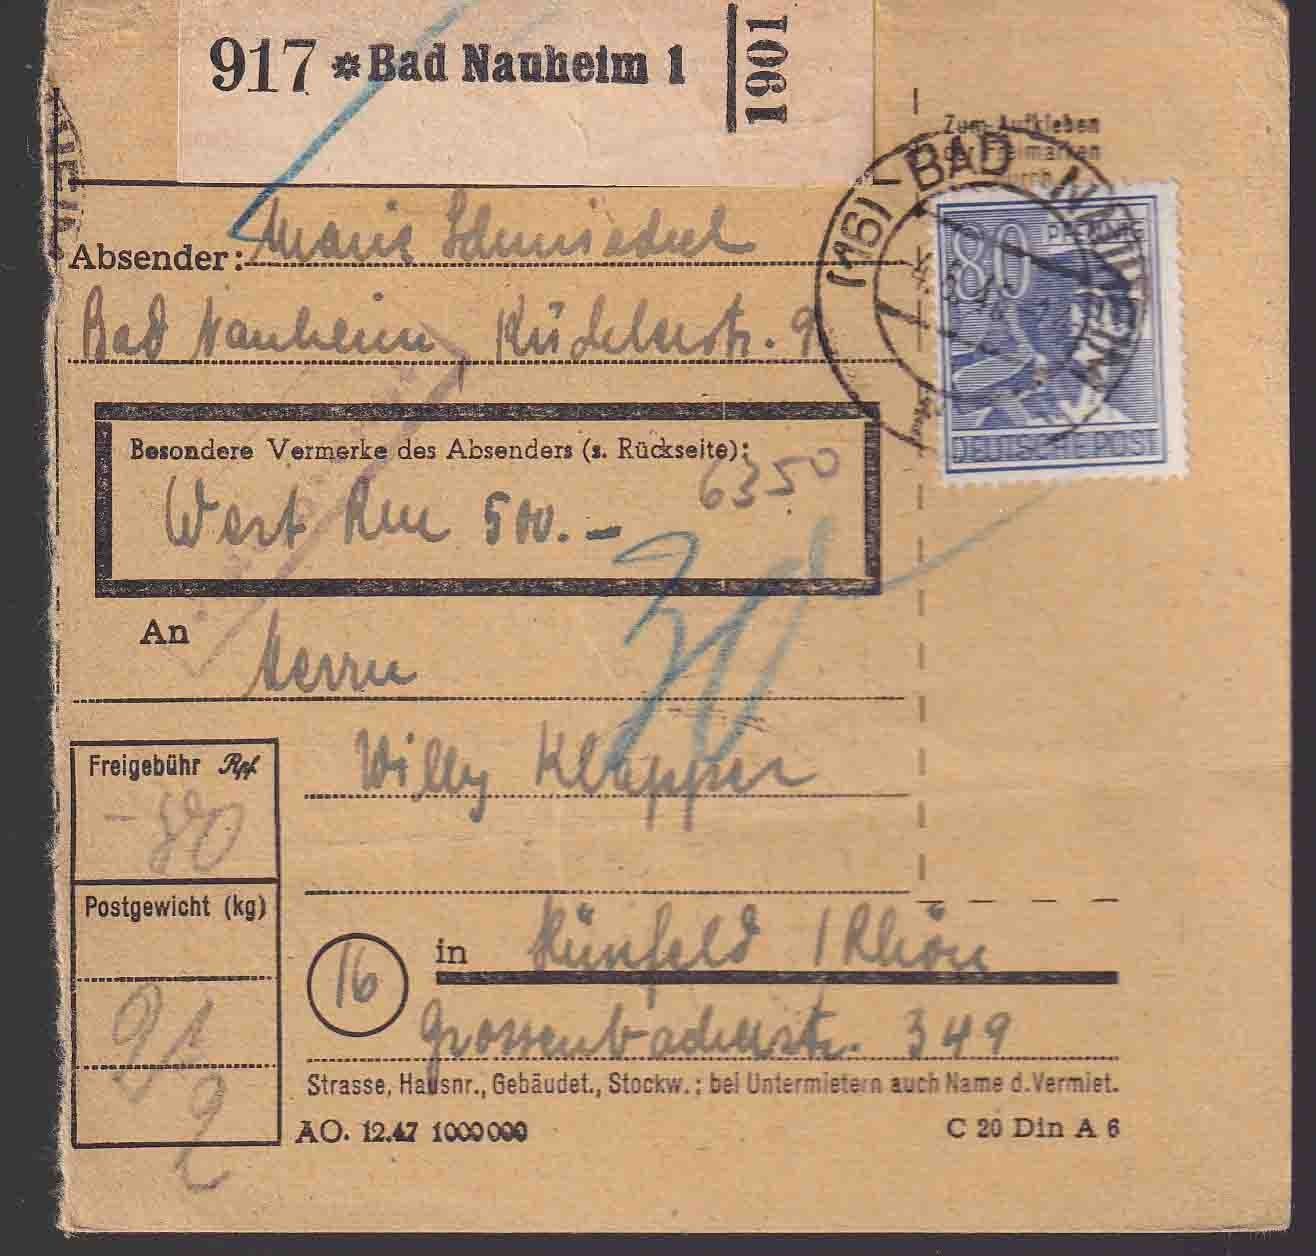 917 *Bad Nauheim 1
1901
Zum Aufkleben
der Freimarken
(16) BAD NAUHEIM
80 PFENNIG
DEUTSCHE POST
Absender: Marie Schmiedel
Bad Nauheim Küchlerstr. 9
Besondere Vermerke des Absenders (s. Rückseite):
6350
Wert Rm 500.-
An
Herrn
Willy Klapper
Freigebühr Rpf
-80
Postgewicht (kg)
16
in Hünfeld / Rhön
Grossenbacherstr. 349
Strasse, Hausnr., Gebäudet., Stockw.; bei Untermietern auch Name d. Vermiet.
AO. 12.47 1000000
C 20 Din A 6